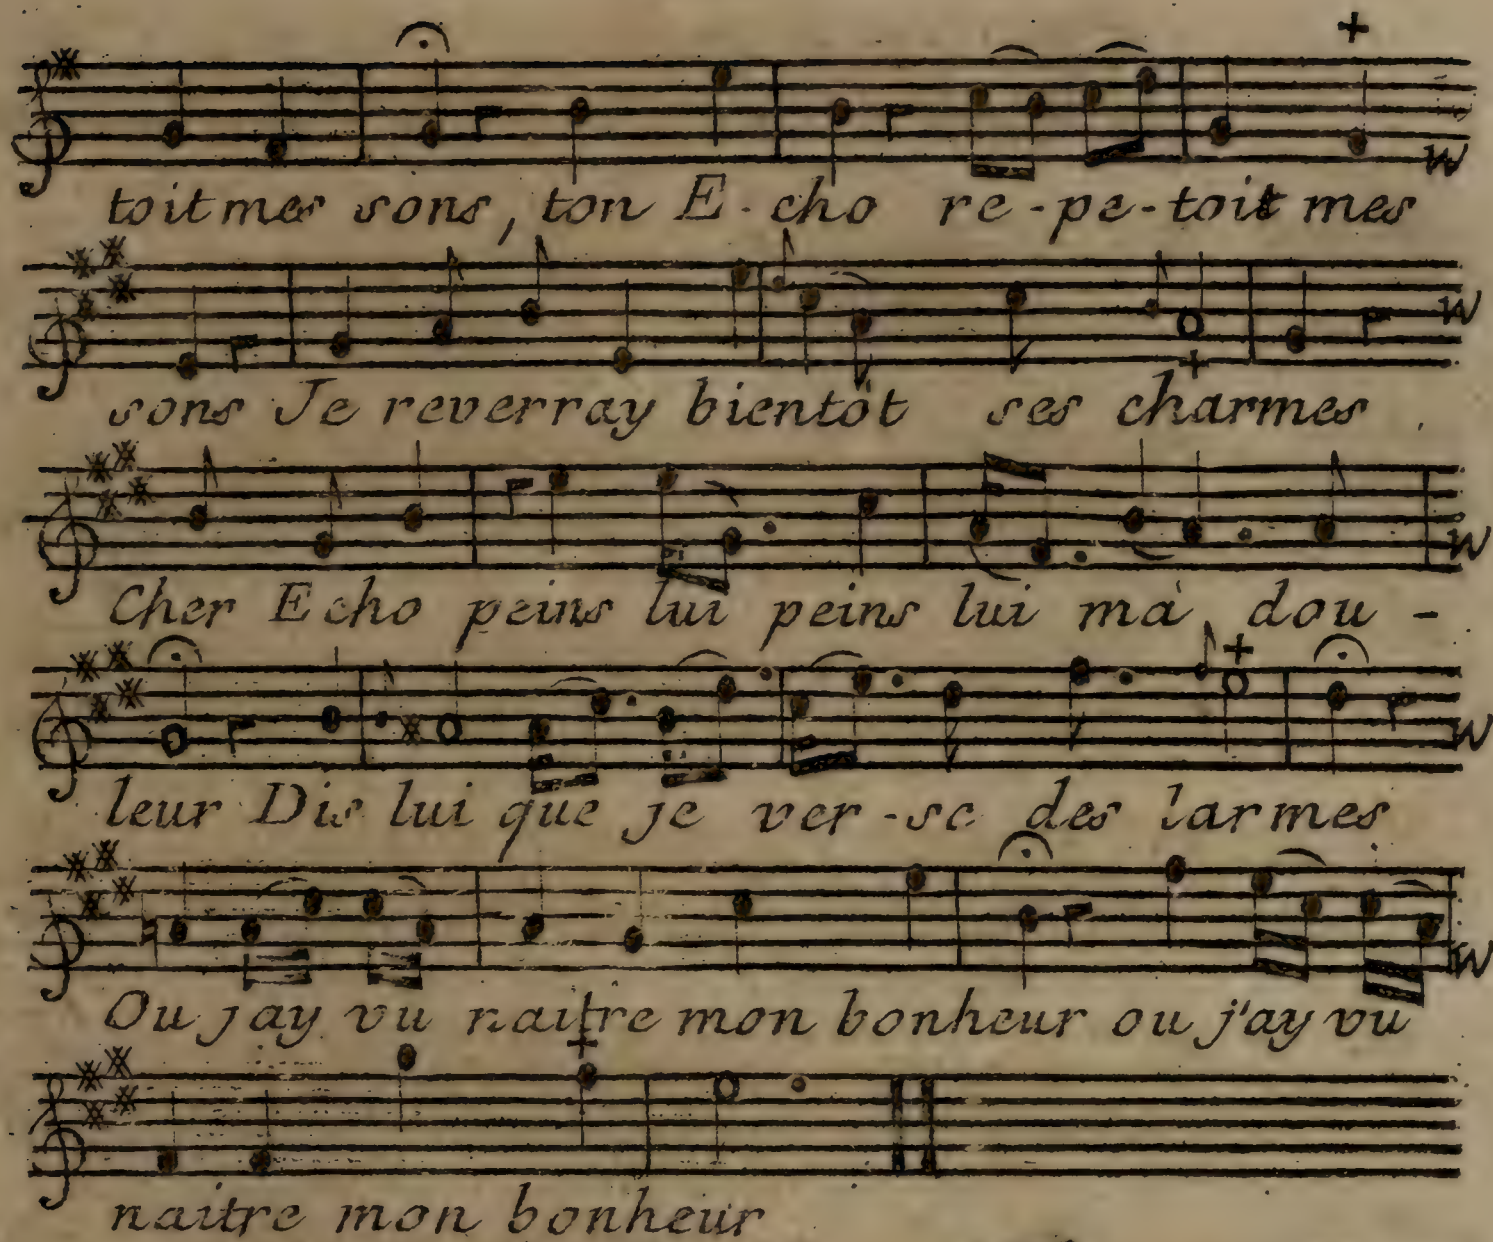 toit mes sons, ton E-cho re-pe-toit mes
sons Je reverray bientôt ses charmes
Cher Echo peins lui peins lui mà dou-
leur Dis lui que je ver-se des larmes
Ou jay vu naitre mon bonheur ou j'ay vu
naitre mon bonheur